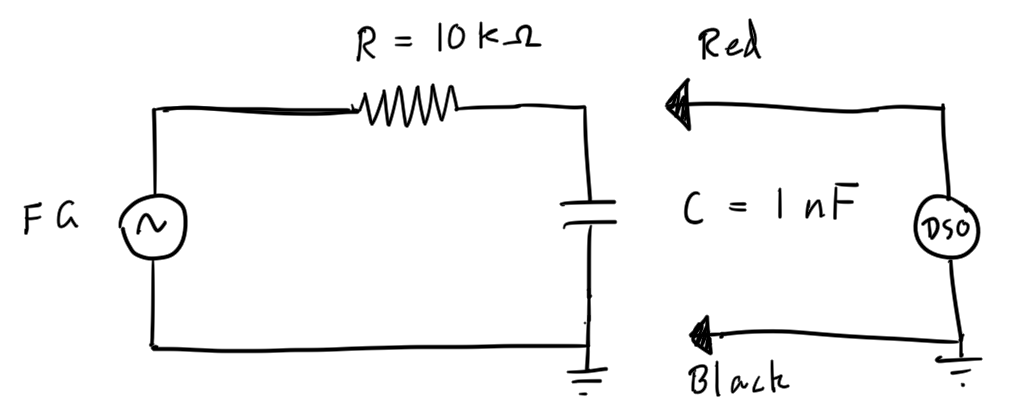 R = 10 kΩ
Red
FG
C = 1 nF
DSO
Black